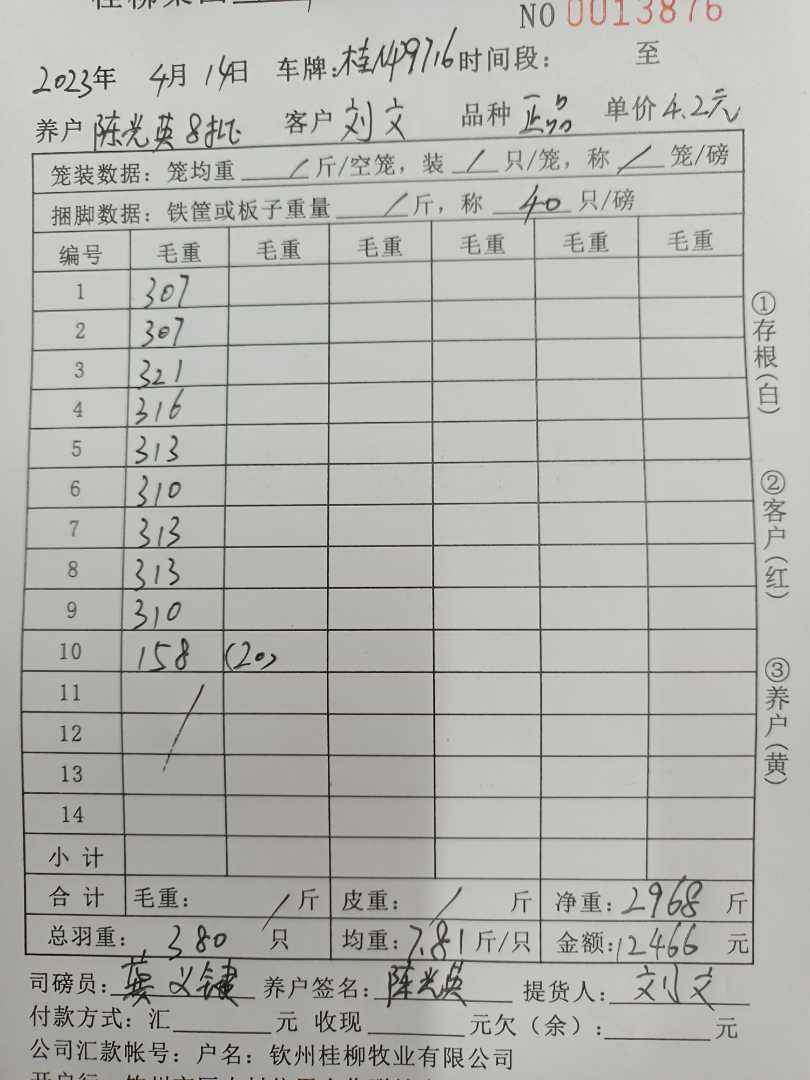 NO 0013876
2023年 4月 14日 车牌:桂N49716 时间段: 至
养户 陈光英8批 客户 刘文 品种 正品 单价 4.2元
笼装数据: 笼均重 / 斤/空笼, 装 / 只/笼, 称 / 笼/磅
捆脚数据: 铁筐或板子重量 / 斤, 称 40 只/磅
编号 毛重 毛重 毛重 毛重 毛重 毛重
1 307
2 307
3 321
4 316
5 313
6 310
7 313
8 313
9 310
10 158 (20)
11 /
12
13
14
小计
合计 毛重: / 斤 皮重: / 斤 净重: 2968 斤
总羽重: 380 只 均重: 7.81 斤/只 金额: 12466 元
司磅员: 龚义键 养户签名: 陈光英 提货人: 刘文
付款方式: 汇 元 收现 元欠(余): 元
公司汇款帐号: 户名: 钦州桂柳牧业有限公司
①存根(白)
②客户(红)
③养户(黄)